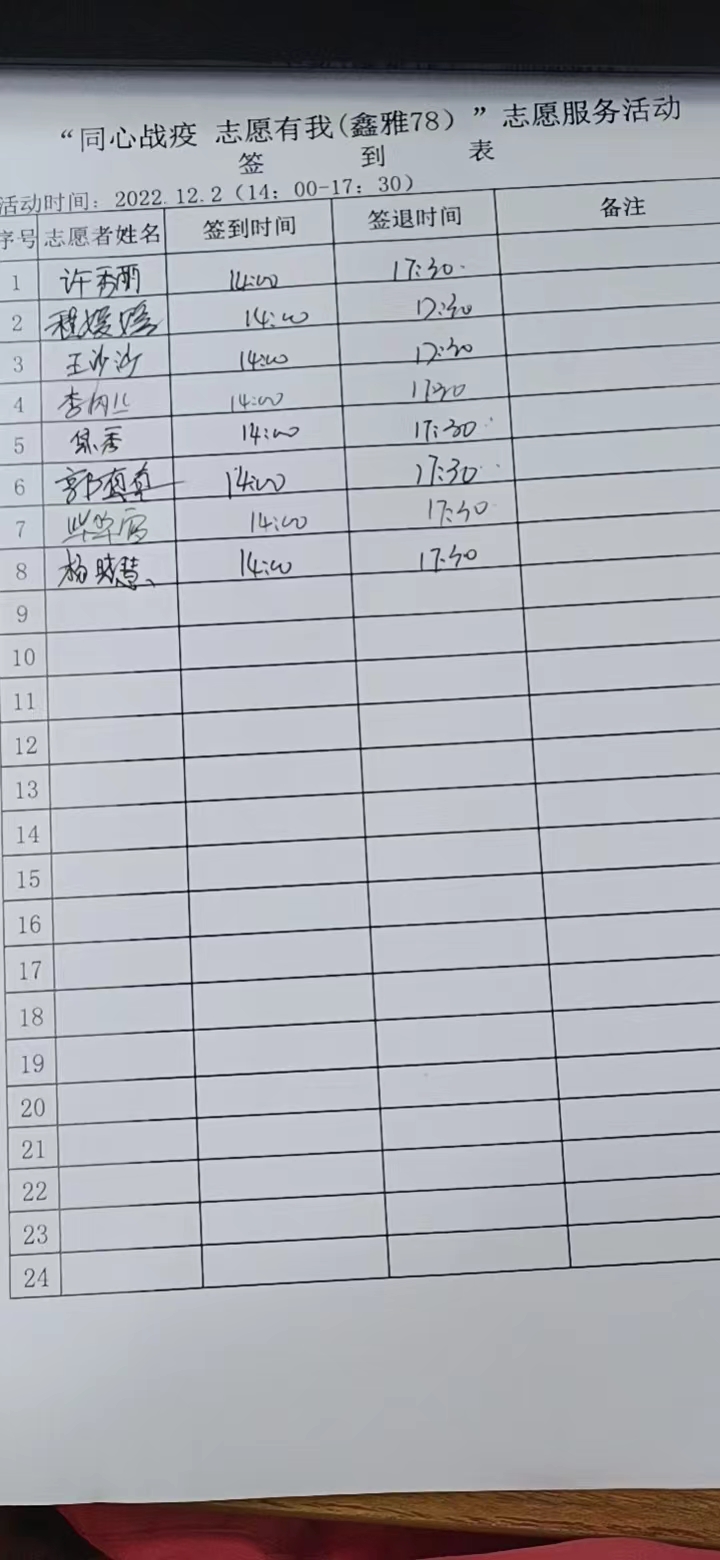 “同心战疫 志愿有我(鑫雅78）”志愿服务活动
签 到 表
活动时间：2022.12.2（14：00-17：30）
序号 志愿者姓名 签到时间 签退时间 备注
1 许秀丽 14:00 17:30
2 程媛婷 14:00 17:30
3 王沙沙 14:00 17:30
4 李 14:00 17:30
5 秀 14:00 17:30
6 郭真真 14:00 17:30
7 14:00 17:30
8 杨晓慧 14:00 17:30
9
10
11
12
13
14
15
16
17
18
19
20
21
22
23
24